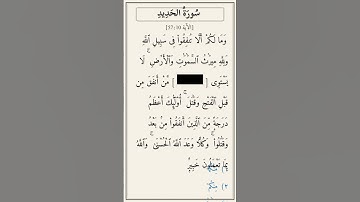 سُورَةُ الحَدِيدِ
[الآية 57:10]
وَمَا لَكُمْ أَلَّا تُنفِقُوا۟ فِى سَبِيلِ ٱللَّهِ
وَلِلَّهِ مِيرَٰثُ ٱلسَّمَٰوَٰتِ وَٱلْأَرْضِ ۚ لَا
يَسْتَوِى [ ] مَّنْ أَنفَقَ مِن
قَبْلِ ٱلْفَتْحِ وَقَٰتَلَ ۚ أُو۟لَٰٓئِكَ أَعْظَمُ
دَرَجَةً مِّنَ ٱلَّذِينَ أَنفَقُوا۟ مِنۢ بَعْدُ
وَقَٰتَلُوا۟ ۚ وَكُلًّا وَعَدَ ٱللَّهُ ٱلْحُسْنَىٰ ۚ وَٱللَّهُ
بِمَا تَعْمَلُونَ خَبِيرٌ
١)
٢)